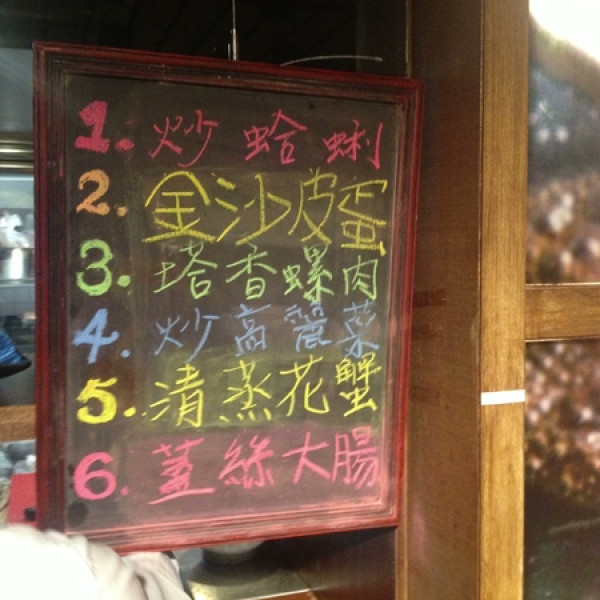 1. 炒蛤蜊
2. 金沙皮蛋
3. 塔香螺肉
4. 炒高麗菜
5. 清蒸花蟹
6. 薑絲大腸